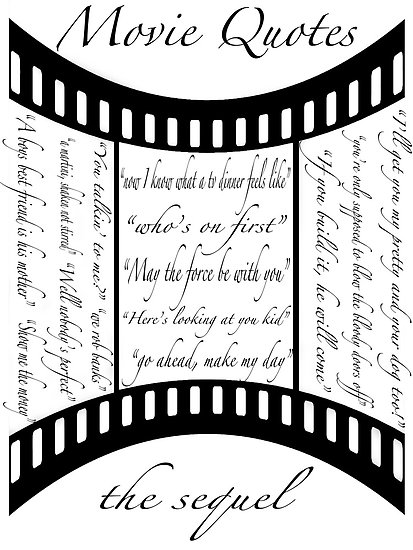 Movie Quotes
"A boys best friend is his mother" "Show me the money"
"a martini, shaken not stirred" "Well nobody's perfect"
"You talkin' to me?" "we rob banks"
"now I know what a tv dinner feels like"
"who's on first"
"May the force be with you"
"Here's looking at you kid"
"go ahead, make my day"
"If you build it, he will come"
"you're only supposed to blow the bloody doors off"
"I'll get you my pretty and your dog too!"
the sequel